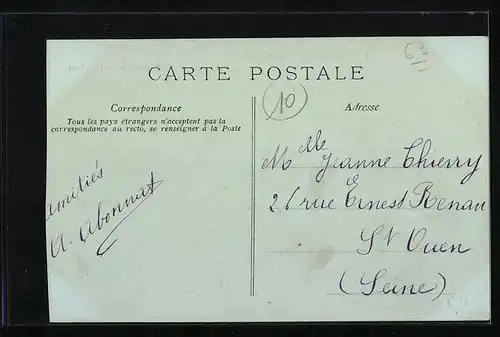 CARTE POSTALE
Correspondance
Tous les pays étrangers n'acceptent pas la
correspondance au recto, se renseigner à la Poste
Adresse
10
amitiés
A. Abonnat
Mlle Jeanne Thierry
26 rue Ernest Renan
St Ouen
(Seine)